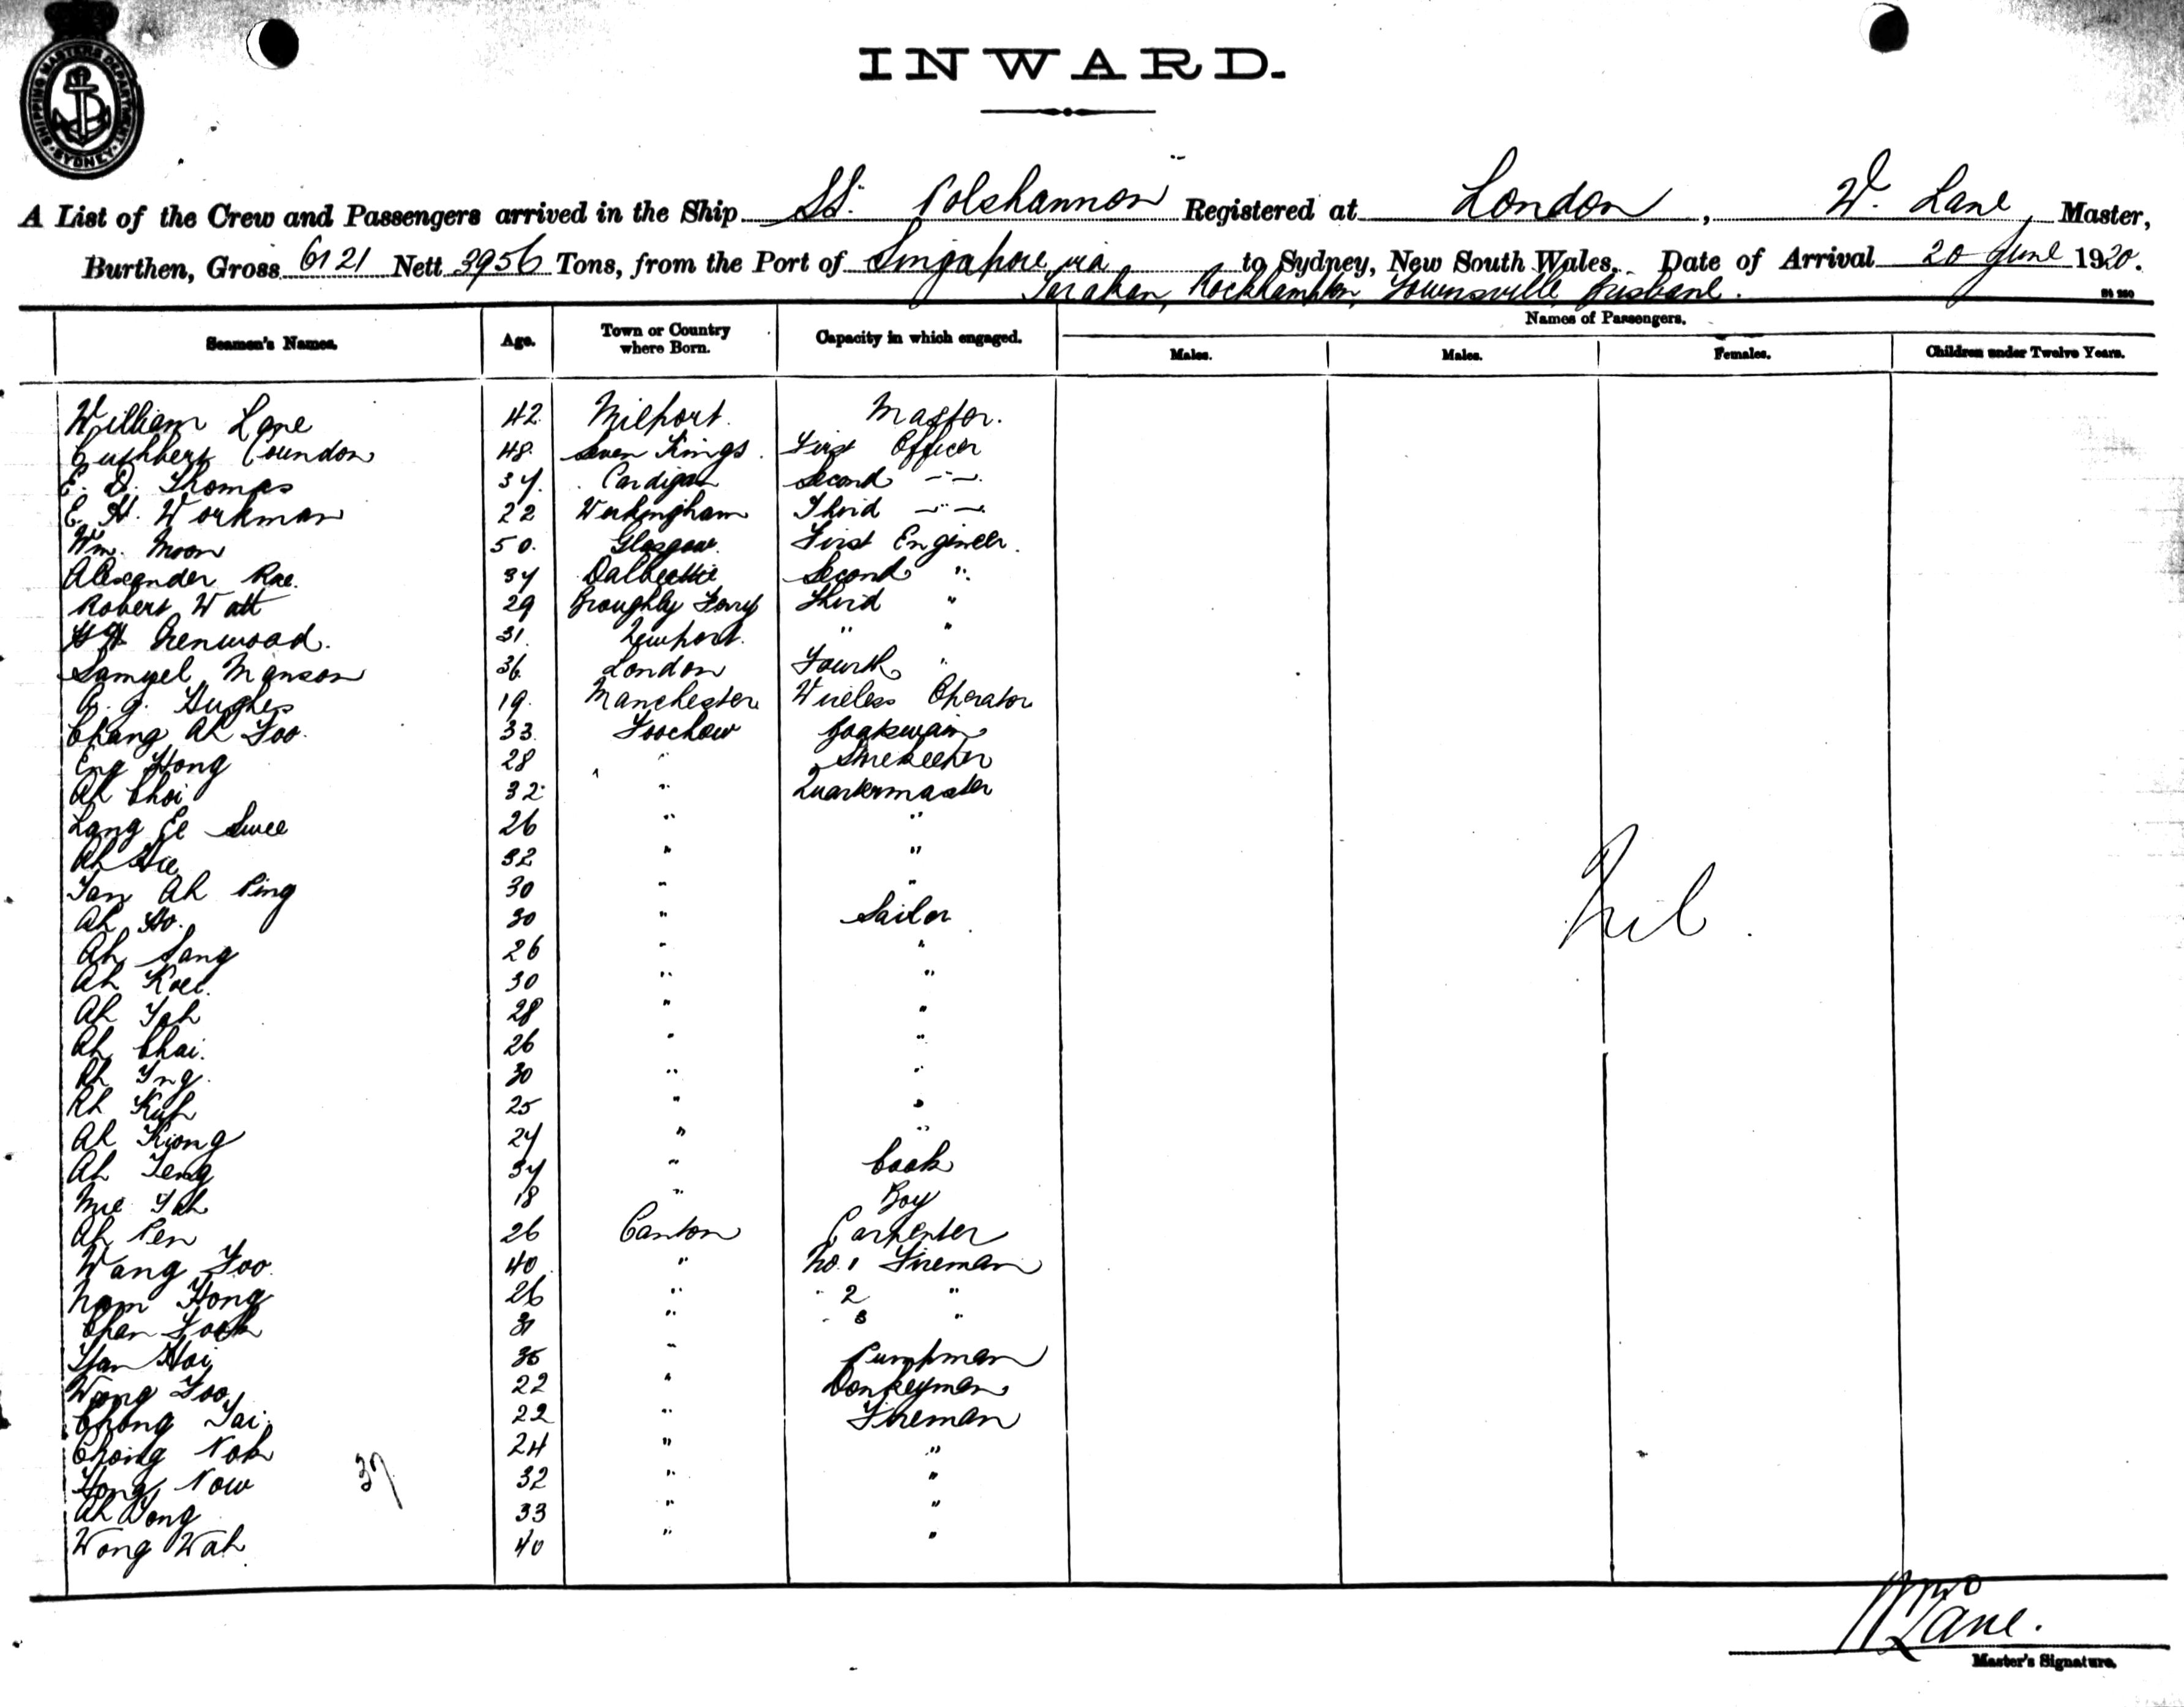 SHIPPING MASTERS DEPARTMENT SYDNEY
INWARD.
A List of the Crew and Passengers arrived in the Ship SS. "Polshannon" Registered at London, W. Lane, Master,
Burthen, Gross 6121 Nett 3956 Tons, from the Port of Singapore via to Sydney, New South Wales, Date of Arrival 20 June 1920.
Tarakan, Rockhampton, Townsville, Brisbane.
Names of Passengers.
Seamen's Names. Age. Town or Country where Born. Capacity in which engaged. Males. Males. Females. Children under Twelve Years.
William Lane 42 Milport. Master.
Cuthbert Coundon 48. Seven Kings. First Officer
E. D. Thomas 34. Cardigan Second -"-
E. H. Workman 22 Workingham Third -"-
Wm. Moon 50. Glasgow. First Engineer.
Alexander Rae. 34 Dalbeattie Second "
Robert Watt 29 Broughty Ferry Third "
Grenwood. 31. Newport. " "
Samuel Manson 36. London Fourth "
A. G. Hughes 19. Manchester Wireless Operator
Chang Ah Foo. 33. Foochow Boatswain
Eng Hong 28 " Storekeeper
Ah Choi 32 " Quartermaster
Lang Ee Swee 26 " "
Ah 32 " "
Tan Ah Ping 30 " "
Ah Ho. 30 " Sailor
Ah Sang 26 " "
Ah Koei. 30 " "
Ah Yah 28 " "
Ah Chai. 26 " "
Ah Yng. 30 " "
Ah Kuh 25 " "
Ah Kiong 24 " "
Ah Teng 34 " Cook
Mee Yah 18 " Boy
Ah Pen 26 Canton Carpenter
Wang Foo 40 " No. 1 Fireman
Nam Hong 26 " " 2 "
Chan Fook 31 " " 3 "
Han Hoi 36 " Pumpman
Wong Foo 22 " Donkeyman
Chong Tai. 22 " Fireman
Chong Nok 24 " "
Hong Now 32 " "
Ah Dong 33 " "
Wong Wah 40 " "
37
Nil.
Wm Lane.
Master's Signature.